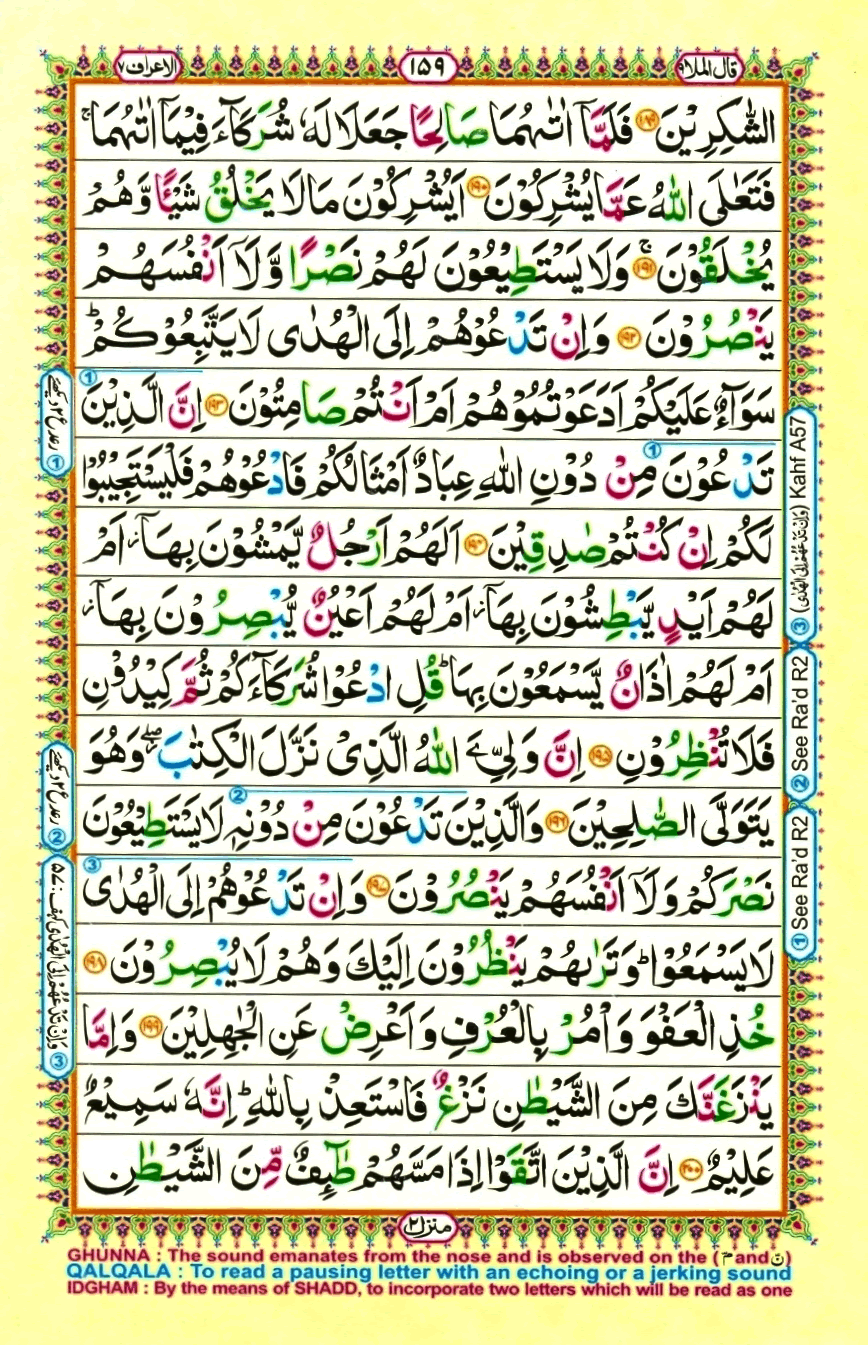 قال الملا ٩
١٥٩
الاعراف ٧
الشّٰكِرِيْنَ ﴿١٨٩﴾ فَلَمَّاۤ اٰتٰىهُمَا صَالِحًا جَعَلَا لَهٗ شُرَكَآءَ فِيْمَاۤ اٰتٰىهُمَا ۚ
فَتَعٰلَى اللّٰهُ عَمَّا يُشْرِكُوْنَ ﴿١٩٠﴾ اَيُشْرِكُوْنَ مَا لَا يَخْلُقُ شَيْـًٔا وَّهُمْ
يُخْلَقُوْنَ ۚ ﴿١٩١﴾ وَلَا يَسْتَطِيْعُوْنَ لَهُمْ نَصْرًا وَّلَاۤ اَنْفُسَهُمْ
يَنْصُرُوْنَ ﴿١٩٢﴾ وَاِنْ تَدْعُوْهُمْ اِلَى الْهُدٰى لَا يَتَّبِعُوْكُمْ ؕ
سَوَآءٌ عَلَيْكُمْ اَدَعَوْتُمُوْهُمْ اَمْ اَنْتُمْ صَامِتُوْنَ ﴿١٩٣﴾ اِنَّ الَّذِيْنَ
تَدْعُوْنَ مِنْ دُوْنِ اللّٰهِ عِبَادٌ اَمْثَالُكُمْ فَادْعُوْهُمْ فَلْيَسْتَجِيْبُوْا
لَكُمْ اِنْ كُنْتُمْ صٰدِقِيْنَ ﴿١٩٤﴾ اَلَهُمْ اَرْجُلٌ يَّمْشُوْنَ بِهَاۤ ز اَمْ
لَهُمْ اَيْدٍ يَّبْطِشُوْنَ بِهَاۤ ز اَمْ لَهُمْ اَعْيُنٌ يُّبْصِرُوْنَ بِهَاۤ ز
اَمْ لَهُمْ اٰذَانٌ يَّسْمَعُوْنَ بِهَا ؕ قُلِ ادْعُوْا شُرَكَآءَكُمْ ثُمَّ كِيْدُوْنِ
فَلَا تُنْظِرُوْنِ ﴿١٩٥﴾ اِنَّ وَلِيِّۦَ اللّٰهُ الَّذِيْ نَزَّلَ الْكِتٰبَ ۖ وَهُوَ
يَتَوَلَّى الصّٰلِحِيْنَ ﴿١٩٦﴾ وَالَّذِيْنَ تَدْعُوْنَ مِنْ دُوْنِهٖ لَا يَسْتَطِيْعُوْنَ
نَصْرَكُمْ وَلَاۤ اَنْفُسَهُمْ يَنْصُرُوْنَ ﴿١٩٧﴾ وَاِنْ تَدْعُوْهُمْ اِلَى الْهُدٰى
لَا يَسْمَعُوْا ؕ وَتَرٰىهُمْ يَنْظُرُوْنَ اِلَيْكَ وَهُمْ لَا يُبْصِرُوْنَ ﴿١٩٨﴾
خُذِ الْعَفْوَ وَاْمُرْ بِالْعُرْفِ وَاَعْرِضْ عَنِ الْجٰهِلِيْنَ ﴿١٩٩﴾ وَاِمَّا
يَنْزَغَنَّكَ مِنَ الشَّيْطٰنِ نَزْغٌ فَاسْتَعِذْ بِاللّٰهِ ؕ اِنَّهٗ سَمِيْعٌ
عَلِيْمٌ ﴿٢٠٠﴾ اِنَّ الَّذِيْنَ اتَّقَوْا اِذَا مَسَّهُمْ طٰٓئِفٌ مِّنَ الشَّيْطٰنِ
منزل ٢
① See Ra'd R2
② See Ra'd R2
③ (وَاِنْ تَدْعُهُمْ اِلَى الْهُدٰى) Kahf A57
① رعد ع ٢ دیکھئے
② رعد ع ٢ دیکھئے
③ وَاِنْ تَدْعُهُمْ اِلَى الْهُدٰى کہف : ٥٧
GHUNNA : The sound emanates from the nose and is observed on the (م and ن)
QALQALA : To read a pausing letter with an echoing or a jerking sound
IDGHAM : By the means of SHADD, to incorporate two letters which will be read as one